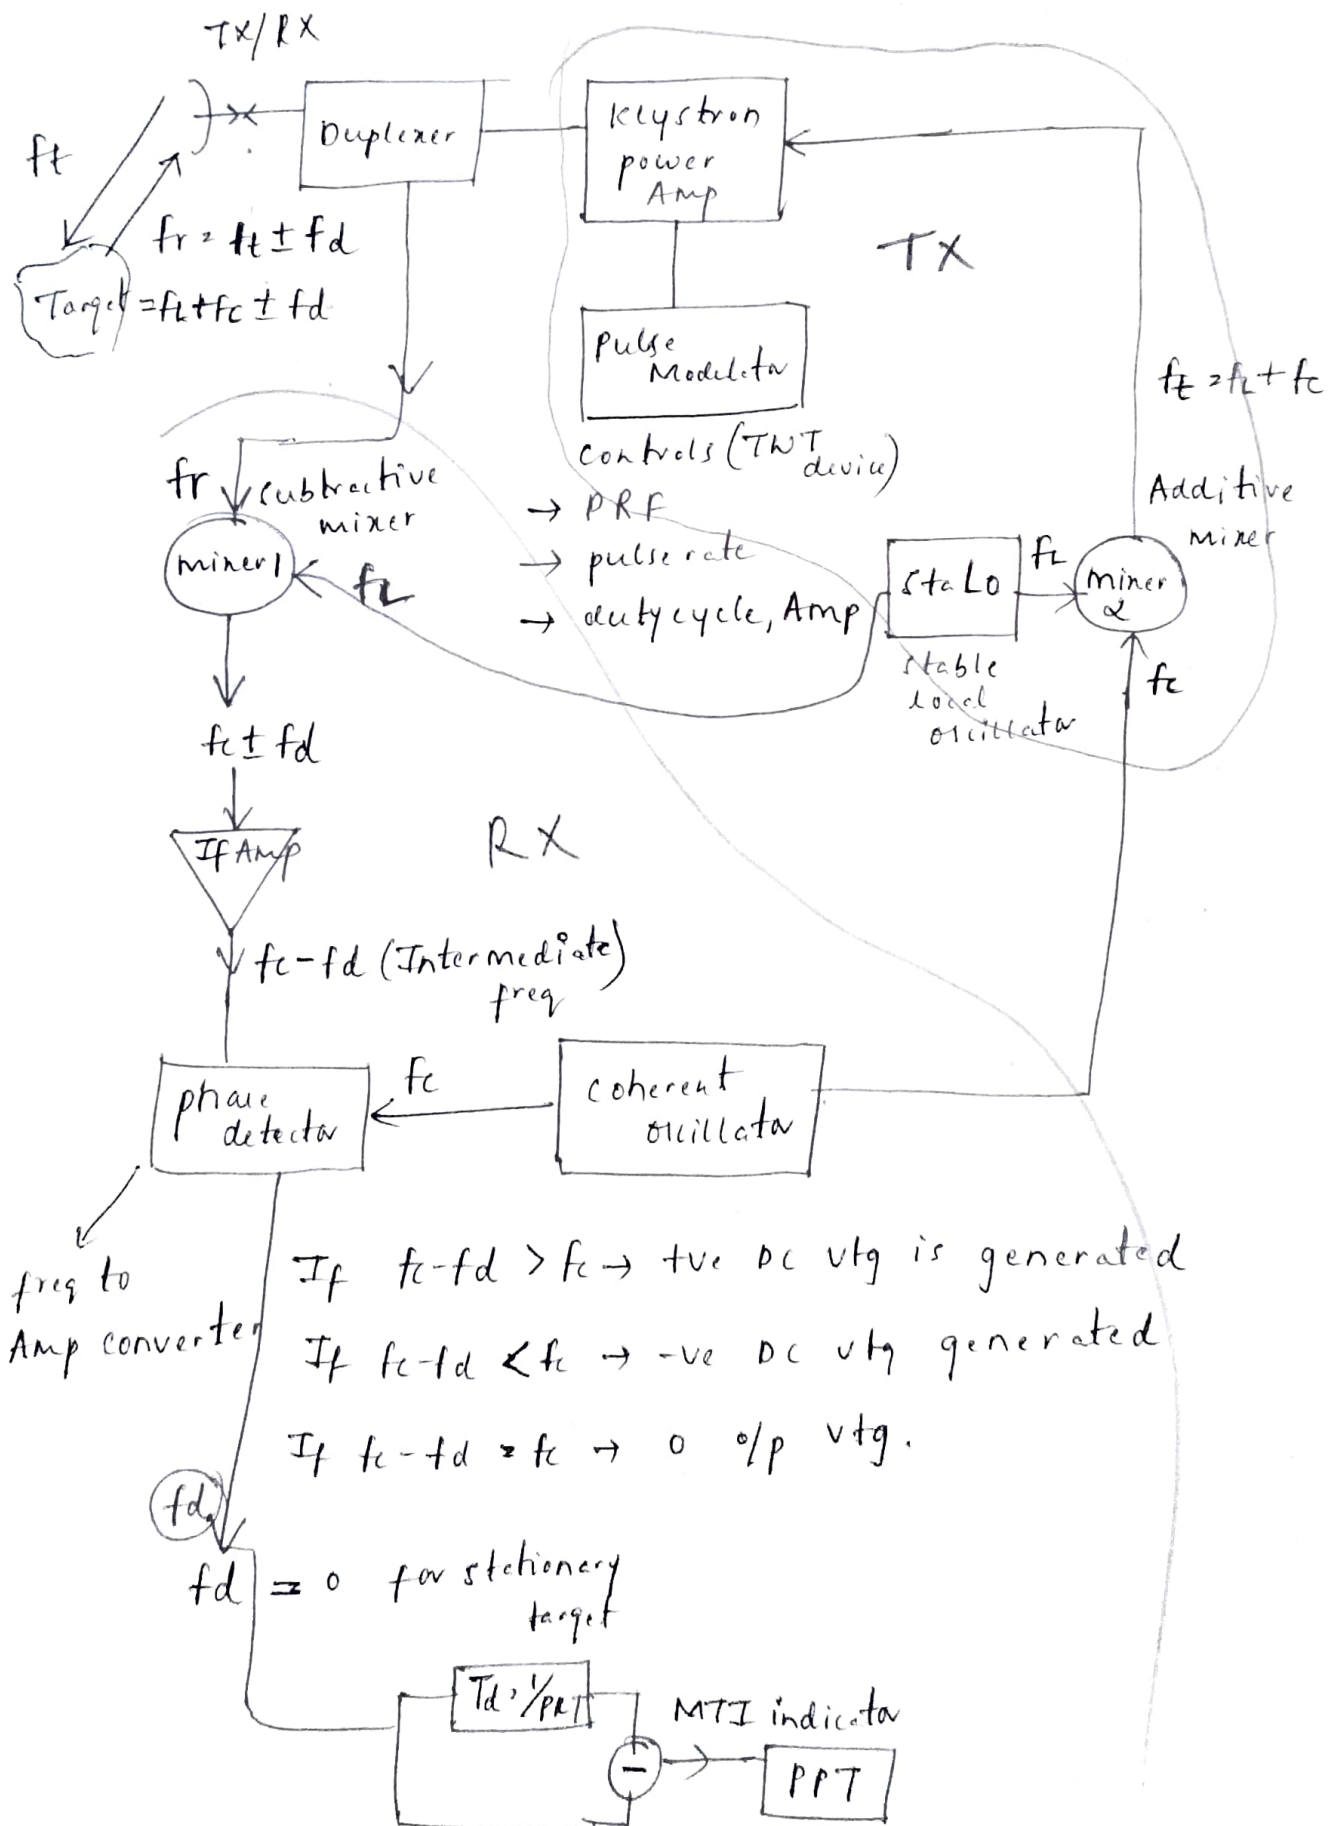 TX/RX
ft
Duplexer
Klystron
power
Amp
TX
fr = ft ± fd
Target = fL+fc ± fd
Pulse
Modulator
ft = fL + fc
controls (TWT
device)
→ PRF
→ pulse rate
→ duty cycle, Amp
fr
subtractive
mixer
mixer 1
fL
StaLo
fL
Additive
mixer
mixer
2
fc
stable
local
oscillator
fc ± fd
If Amp
RX
fc-fd (Intermediate)
freq
phase
detector
fc
coherent
oscillator
freq to
Amp converter
If fc-fd > fc → +ve DC vtg is generated
If fc-fd < fc → -ve DC vtg generated
If fc-fd = fc → 0 o/p vtg.
fd
fd = 0 for stationary
target
Td = 1/PRT
MTI indicator
−
PPT